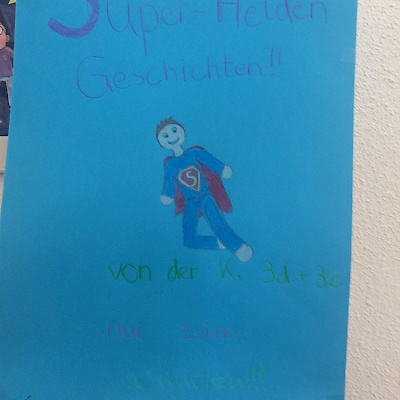 Super-Helden
Geschichten!!
S
von der K. 3d + 3c
nur zum